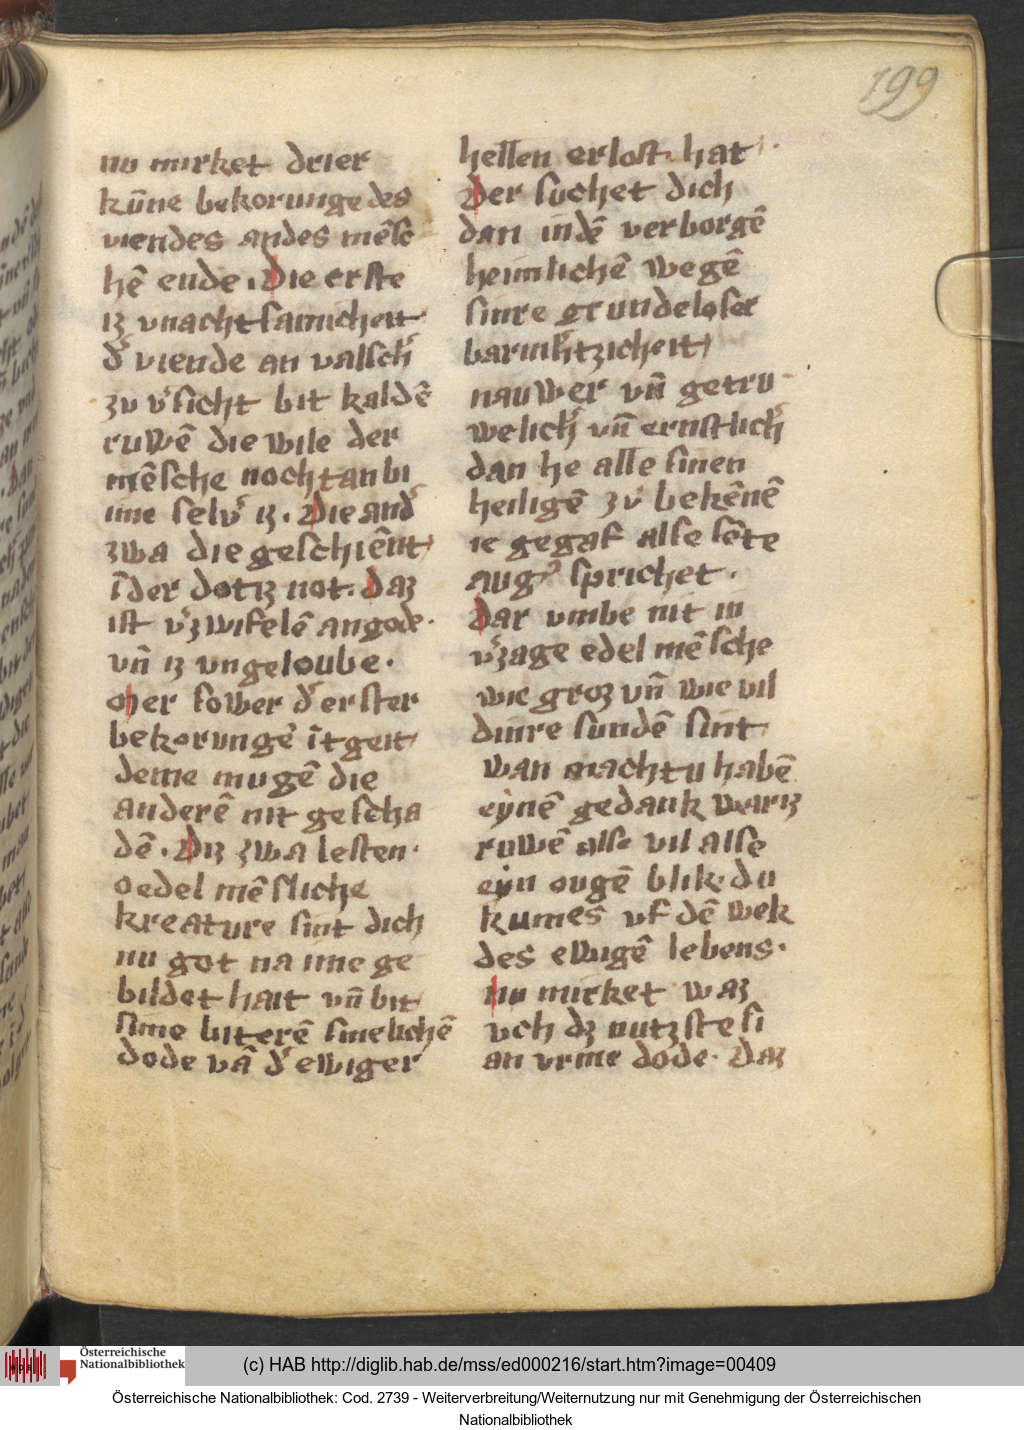 199
nu mirket drier
kūne bekorunge des
viendes an des mēsc
hē ende . Die erste
iz vnachtsamicheit
d' viende an valsch'
zu v'sicht bit kaldē
ruwē die wile der
mēsche nochtan bi
ime selv' iz . Die and'
zwa die geschiēnt
īder dotiz not . daz
ist v'zwifelē an gode .
vn̄ iz vngeloube .
Mer so wer d' erster
bekorunge' ītgeit
deme mugē die
anderē nit gescha
dē . Diz zwa lesten .
o edel mēsliche
kreature sint dich
nu got na ime ge
bildet hait vn̄ bit
sime biterē sinelichē
dode vā d' ewiger
hellen erlost hat .
Der suchet dich
dan indē verborgē
heimlichē wegē
sinre grundeloser
barmh'tzicheit
nauwer vn̄ getru
welich' vn̄ ernstlich'
dan he alle sinen
heiligē zu bekēnē
ie gegaf alse sēte
aug' sprichet .
Dar vmbe nit in
v'zage edel mēsche
wie groz vn̄ wie vil
dinre sundē sint
wan machtu habē
eẏnē gedank wariz
ruwē alse vil alse
eẏn ougē blik du
kumes vf dē wek
des ewigē lebens .
Nu mirket waz
vch dz nutzste si
an vrme dode . Daz
Österreichische
Nationalbibliothek
(c) HAB http://diglib.hab.de/mss/ed000216/start.htm?image=00409
Österreichische Nationalbibliothek: Cod. 2739 - Weiterverbreitung/Weiternutzung nur mit Genehmigung der Österreichischen
Nationalbibliothek